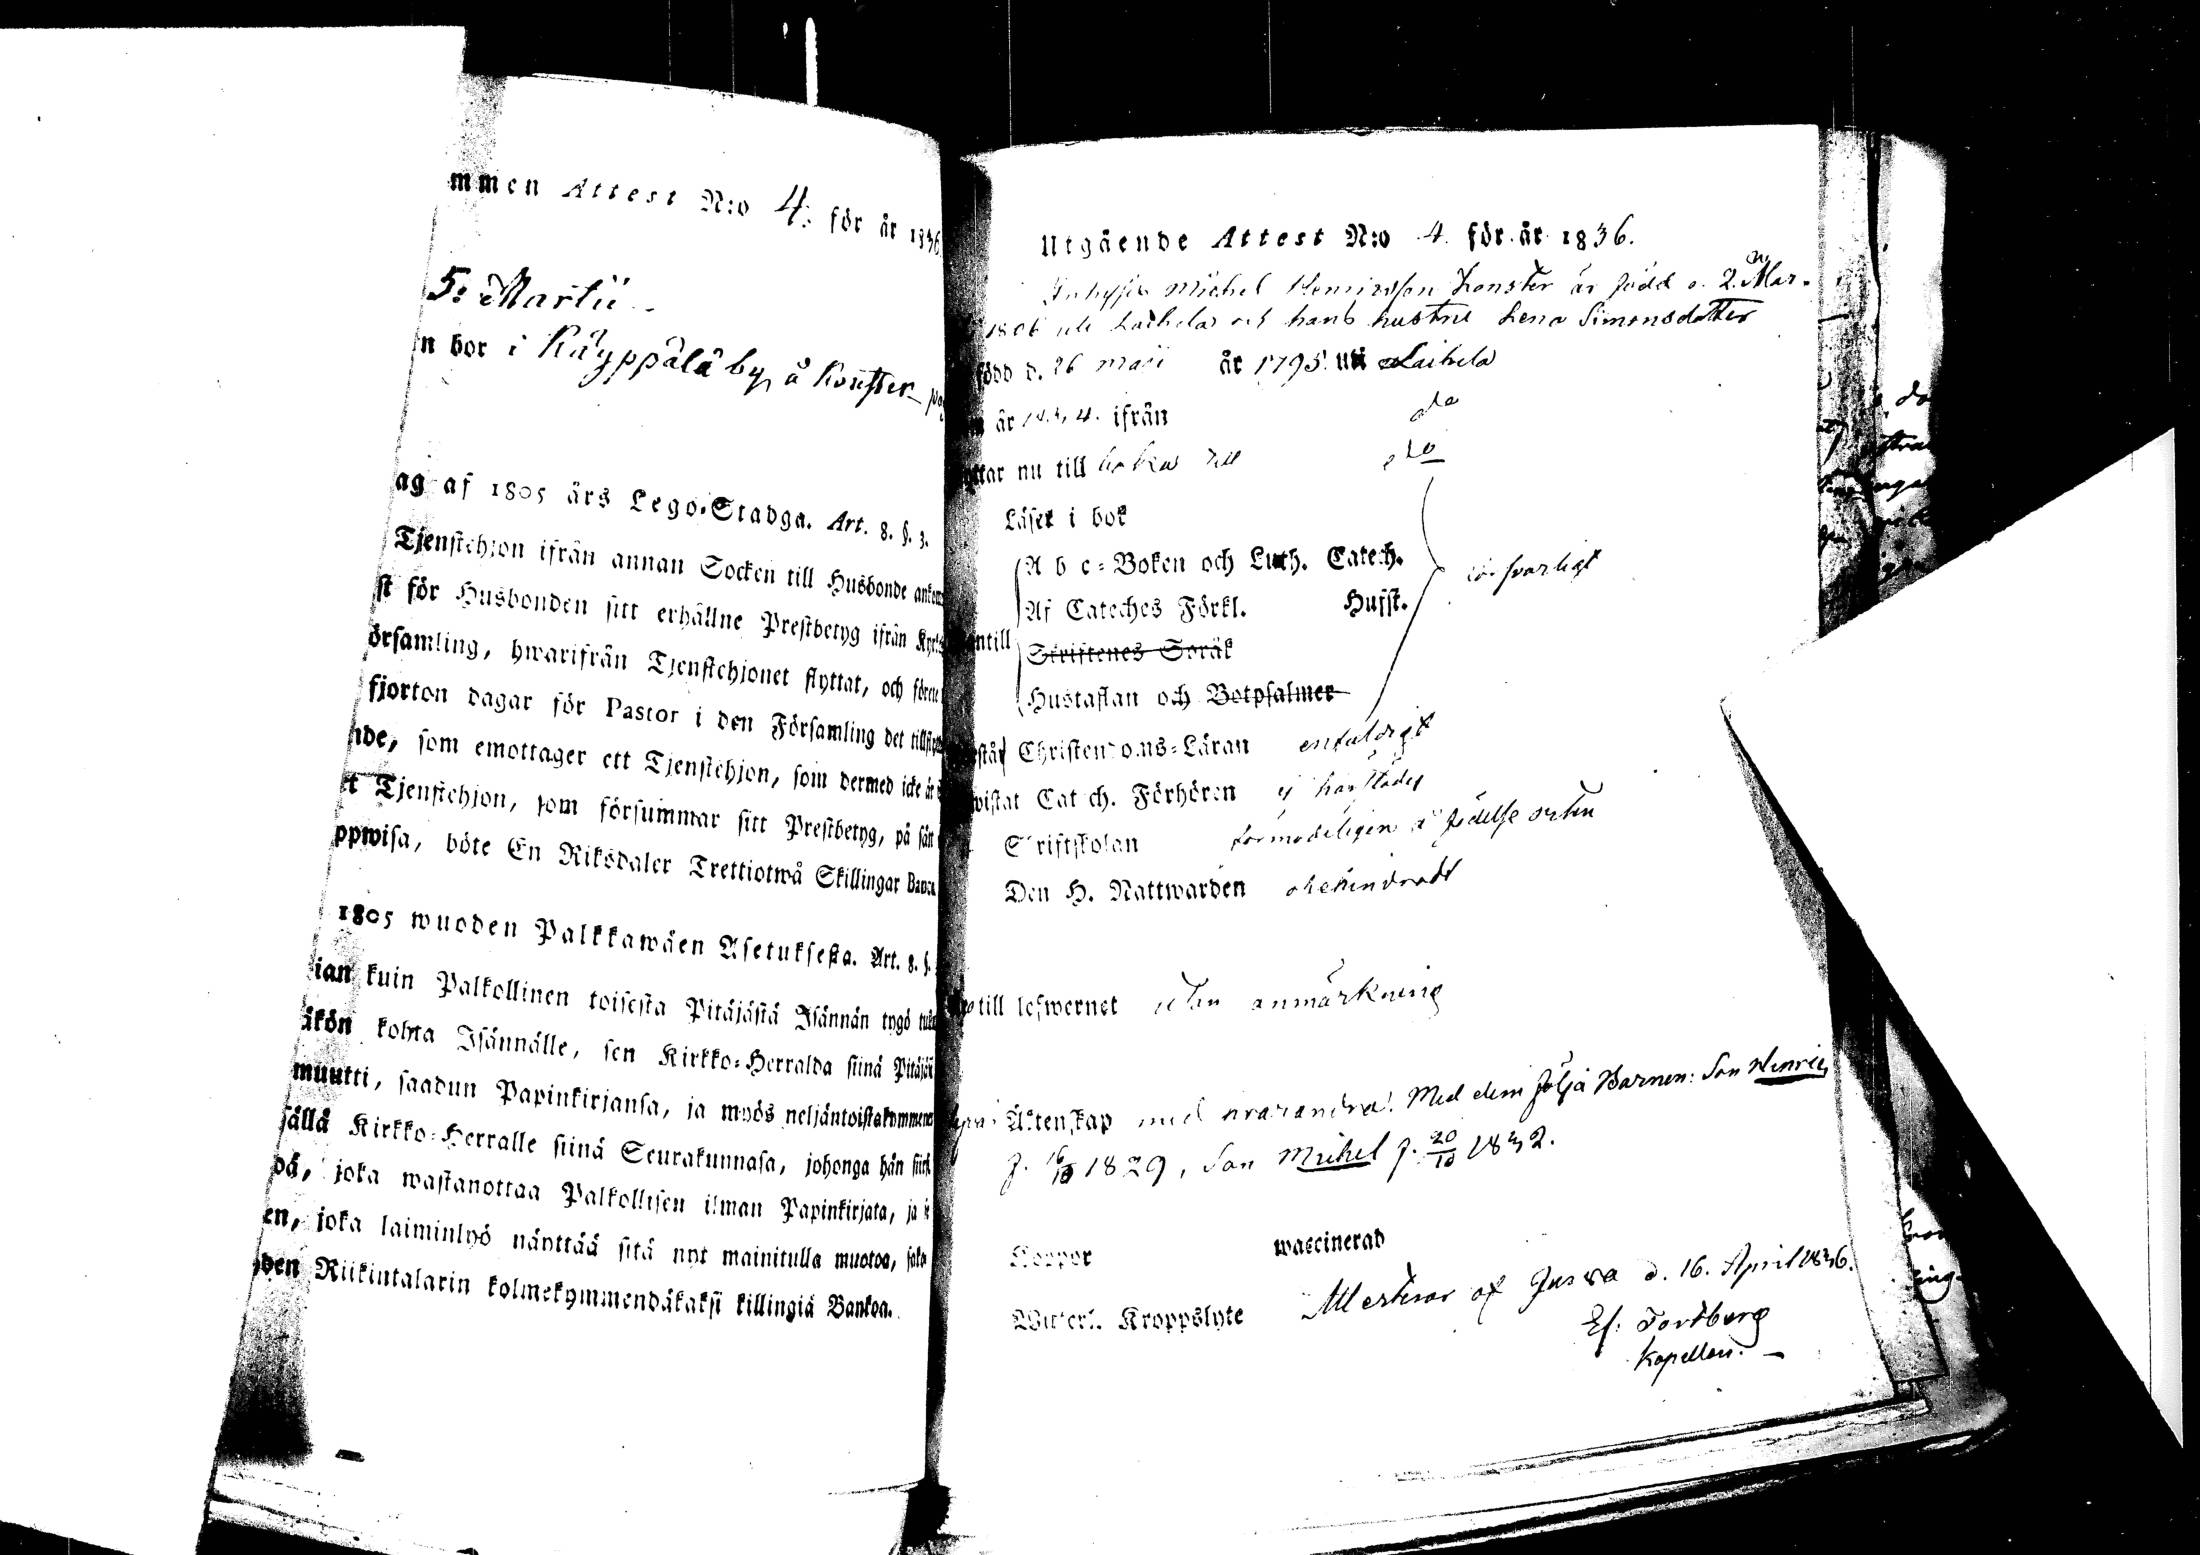 mmen Attest N:o 4: för år 1836
5: Martii
n bor i Käyppälä by, å Konster
ag af 1805 års Lego-Stadga. Art. 8. §. 3.
Tjenstehjon ifrån annan Socken till Husbonde ankom
st för Husbonden sitt erhållne Prestbetyg ifrån
örsamling, hwarifrån Tjenstehjonet flyttat, och förete
fjorton dagar för Pastor i den Församling det
nde, som emottager ett Tjenstehjon, som dermed icke är
t Tjenstehjon, som försummar sitt Prestbetyg, på sätt
ppwisa, böte En Riksdaler Trettiotwå Skillingar Banco
1805 wuoden Palkkawäen Asetuksesta. Art. 8. §.
ian kuin Palkollinen toisesta Pitäjästä Isännän tygö
äkön kohta Isännälle, sen Kirkko-Herralda siinä
muutti, saadun Papinkirjansa, ja myös neljäntoistakymmenen
ällä Kirkko-Herralle siinä Seurakunnasa, johonga hän
dä, joka wastanottaa Palkollisen ilman Papinkirjata, ja
en, joka laiminlyö näyttää sitä nyt mainitulla muotoa,
den Riikintalarin kolmekymmendäkaksi killingiä Bankoa.
Utgående Attest N:o 4. för år 1836.
Michel Henricsson Konster är född d. 2. Mar-
1806 uti Laihela och hans hustru Lena Simonsdotter
född d. 26 maji år 1795 uti Laihela
år 1834. ifrån do
ttar nu till baka till do
Läser i bok
A b c-Boken och Luth. Catech.
Af Cateches Förkl. Husst. försvarligt
ntill
Skriftenes Språk
Hustaflan och Botpsalmer
står Christendoms-Läran enfaldigt
wistat Catech. Förhören ej härstädes
Skriftskolan förmodeligen i födelse orten
Den H. Nattwarden obehindradt
till lefwernet utan anmärkning
Äktenskap med hvarandra. Med dem följa Barnen: Son Henric,
f. 16/10 1829, Son Michel f. 20/10 1832.
Koppor waccinerad
Witterl. Kroppslyte Attesterar af Jurva d. 16. April 1836.
Ef: Tordberg
Kapellan.